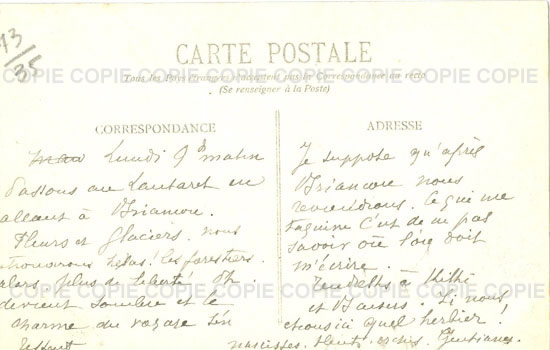 13/35
CARTE POSTALE
COPIE COPIE COPIE COPIE COPIE COPIE COPIE COPIE
Tous les Pays étrangers n'acceptent pas la Correspondance au recto
(Se renseigner à la Poste)
CORRESPONDANCE
Lundi 9h matin
Passons au Lautaret en
allant à Briançon.
Fleurs et glaciers. nous
trouverons hélas. les forestiers.
alors plus de liberté
devient sombre et le
charme du voyage s'en
ressent
ADRESSE
Je suppose qu'après
Briançon nous
reviendrons. Ce qui me
taquine c'est de ne pas
savoir où l'on doit
m'écrire.
Tendresses à
et Baisers. Si nous
étions ici quel herbier!
narcisses. Gentianes.
COPIE COPIE COPIE COPIE COPIE COPIE COPIE COPIE
COPIE COPIE COPIE COPIE COPIE COPIE COPIE COPIE